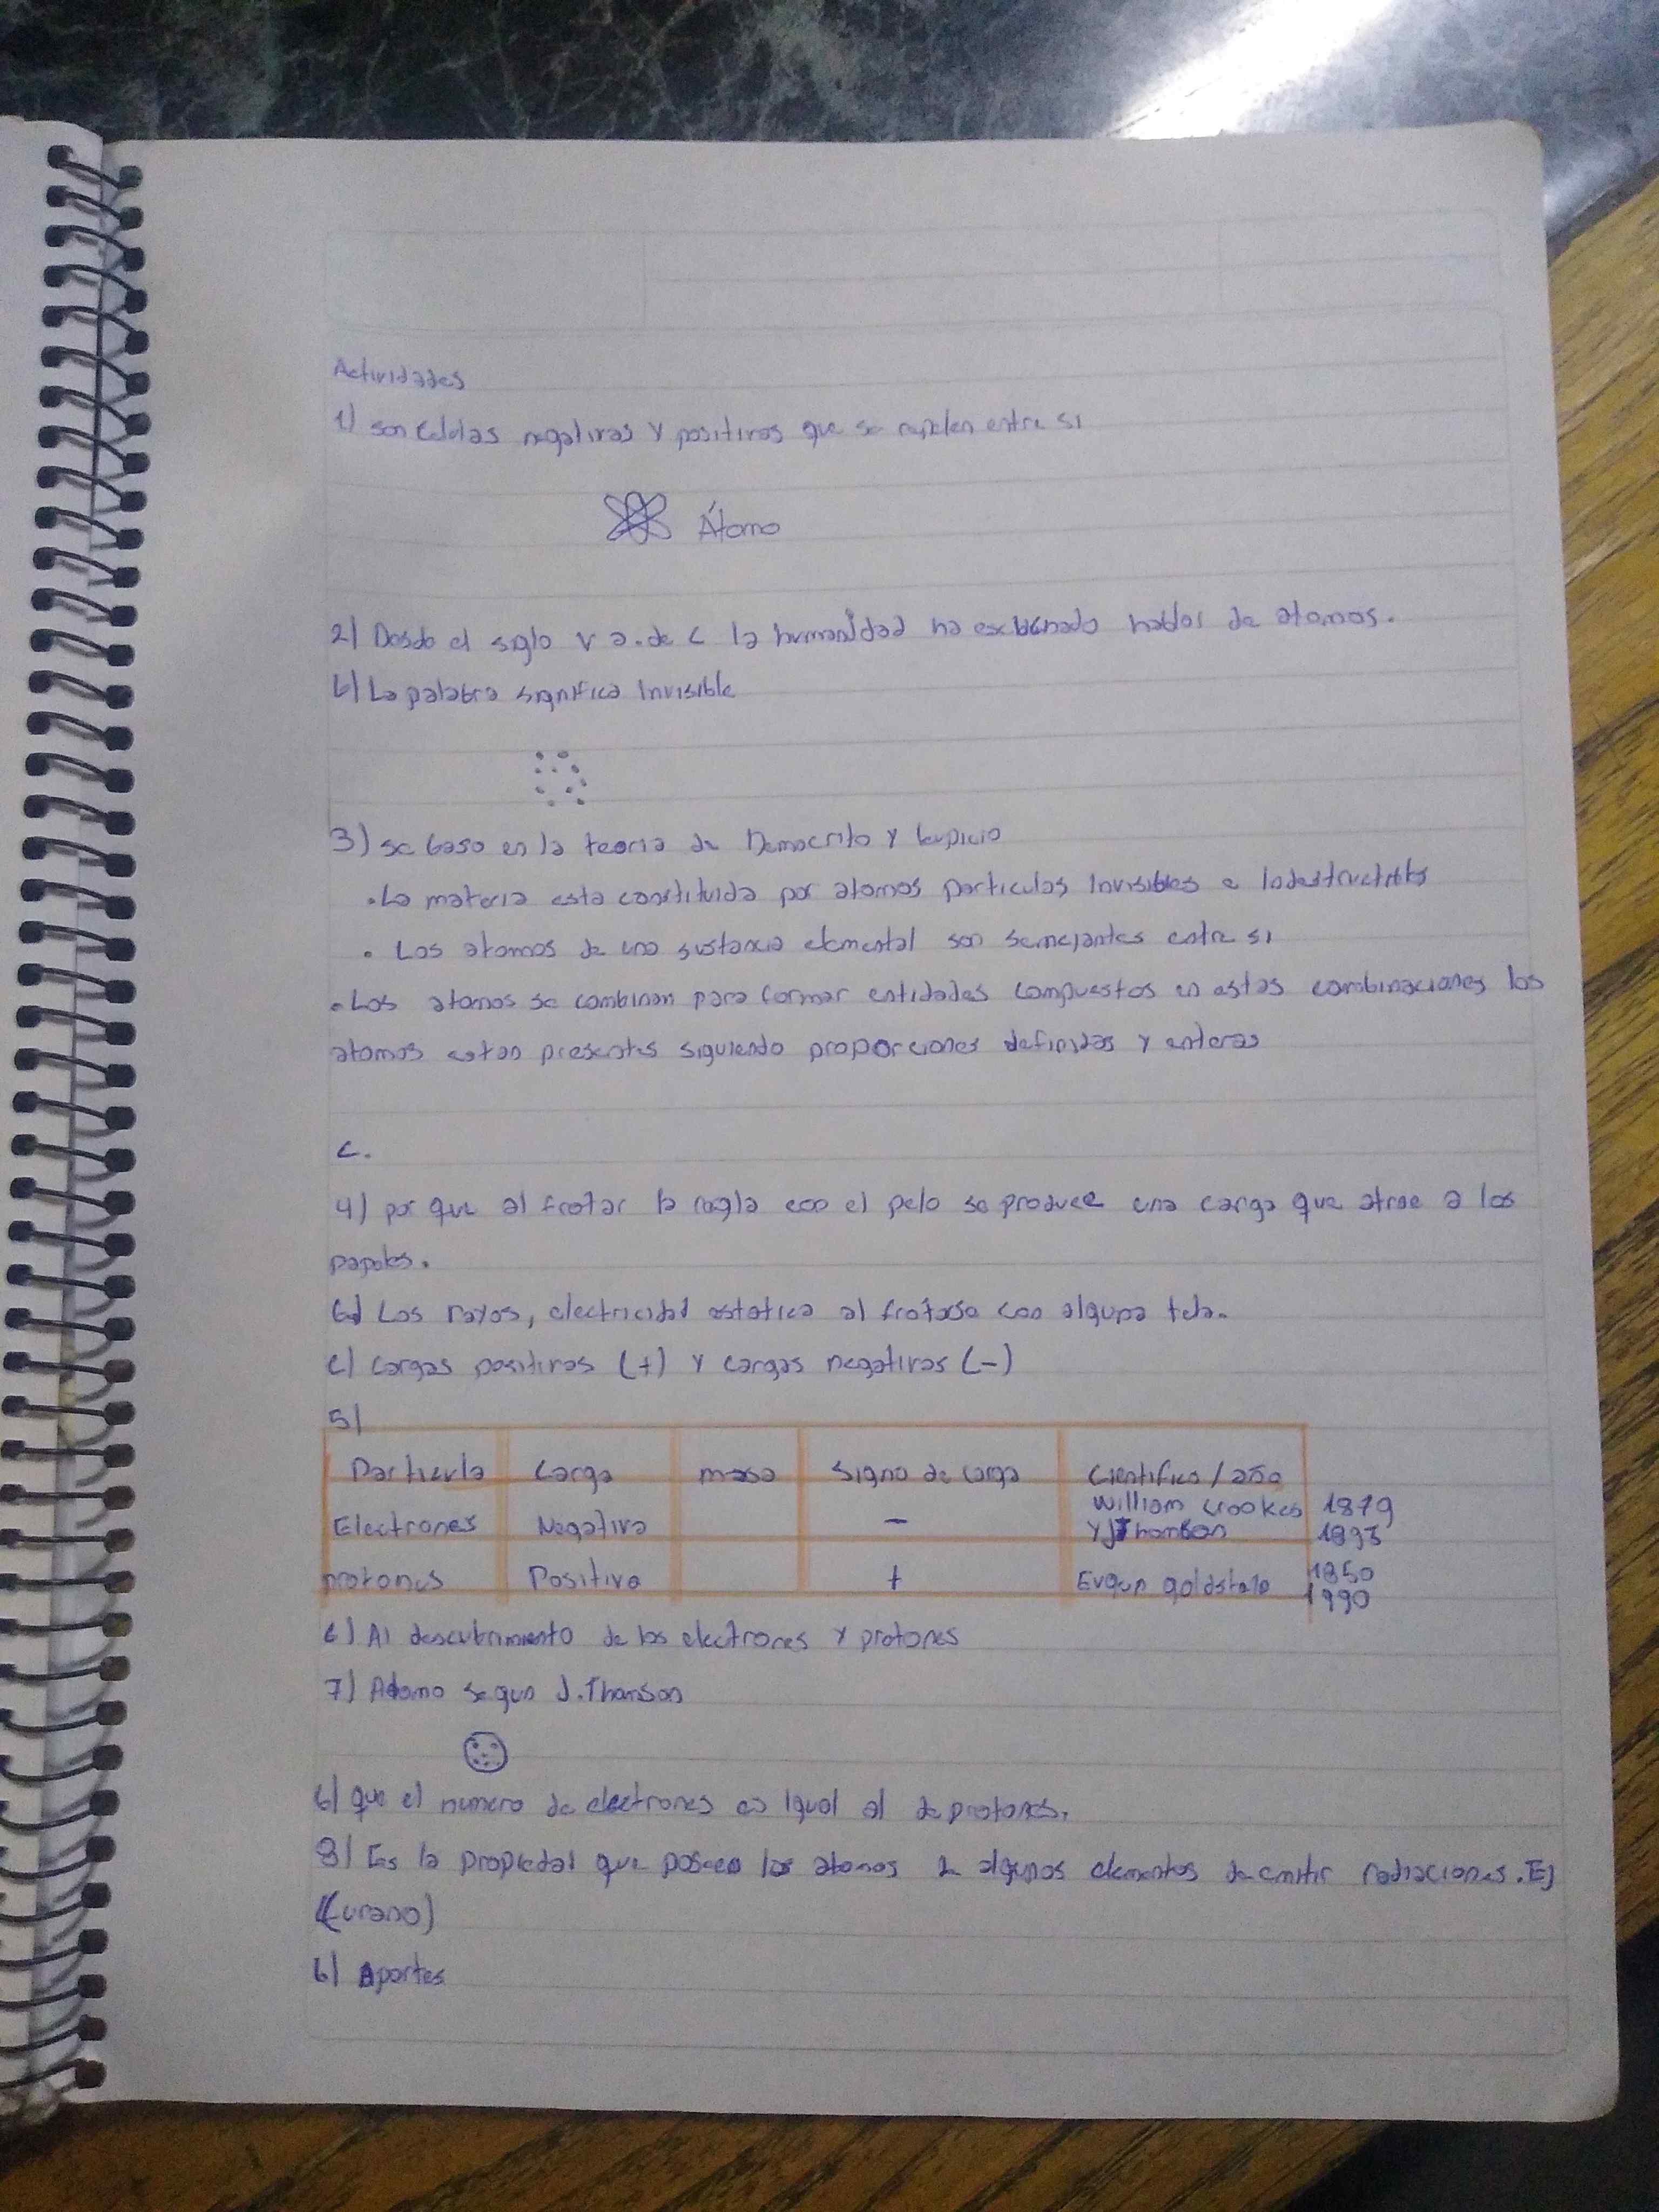 Actividades
1) son celulas negativas y positivas que se repelen entre si
Átomo
2) Desde el siglo V a. de C la humanidad ha escuchado hablar de atomos.
b) La palabra significa Invisible
3) se baso en la teoria de Democrito y leupicio
. La materia esta constituida por atomos particulas Invisibles e Indestructibles
. Los atomos de una sustancia elemental son semejantes entre si
. Los atomos se combinan para formar entidades compuestos en estas combinaciones los
atomos estan presentes siguiendo proporciones definidas y enteras
C.
4) por que al frotar la regla con el pelo se produce una carga que atrae a los
papeles.
b) Los rayos, electricidad estatica al frotarse con alguna tela.
c) cargas positivas (+) y cargas negativas (-)
5)
Particula Carga masa Signo de carga Cientifico / año
Electrones Negativa - William Crookes 1879
Y J Thomson
protones Positiva + Eugen goldstein 1850
1990
6) Al descubrimiento de los electrones y protones
7) Atomo segun J. Thamson
b) que el numero de electrones es igual al de protones.
8) Es la propiedad que poseen los atomos de algunos elementos de emitir radiaciones. Ej
(urano)
b) Aportes